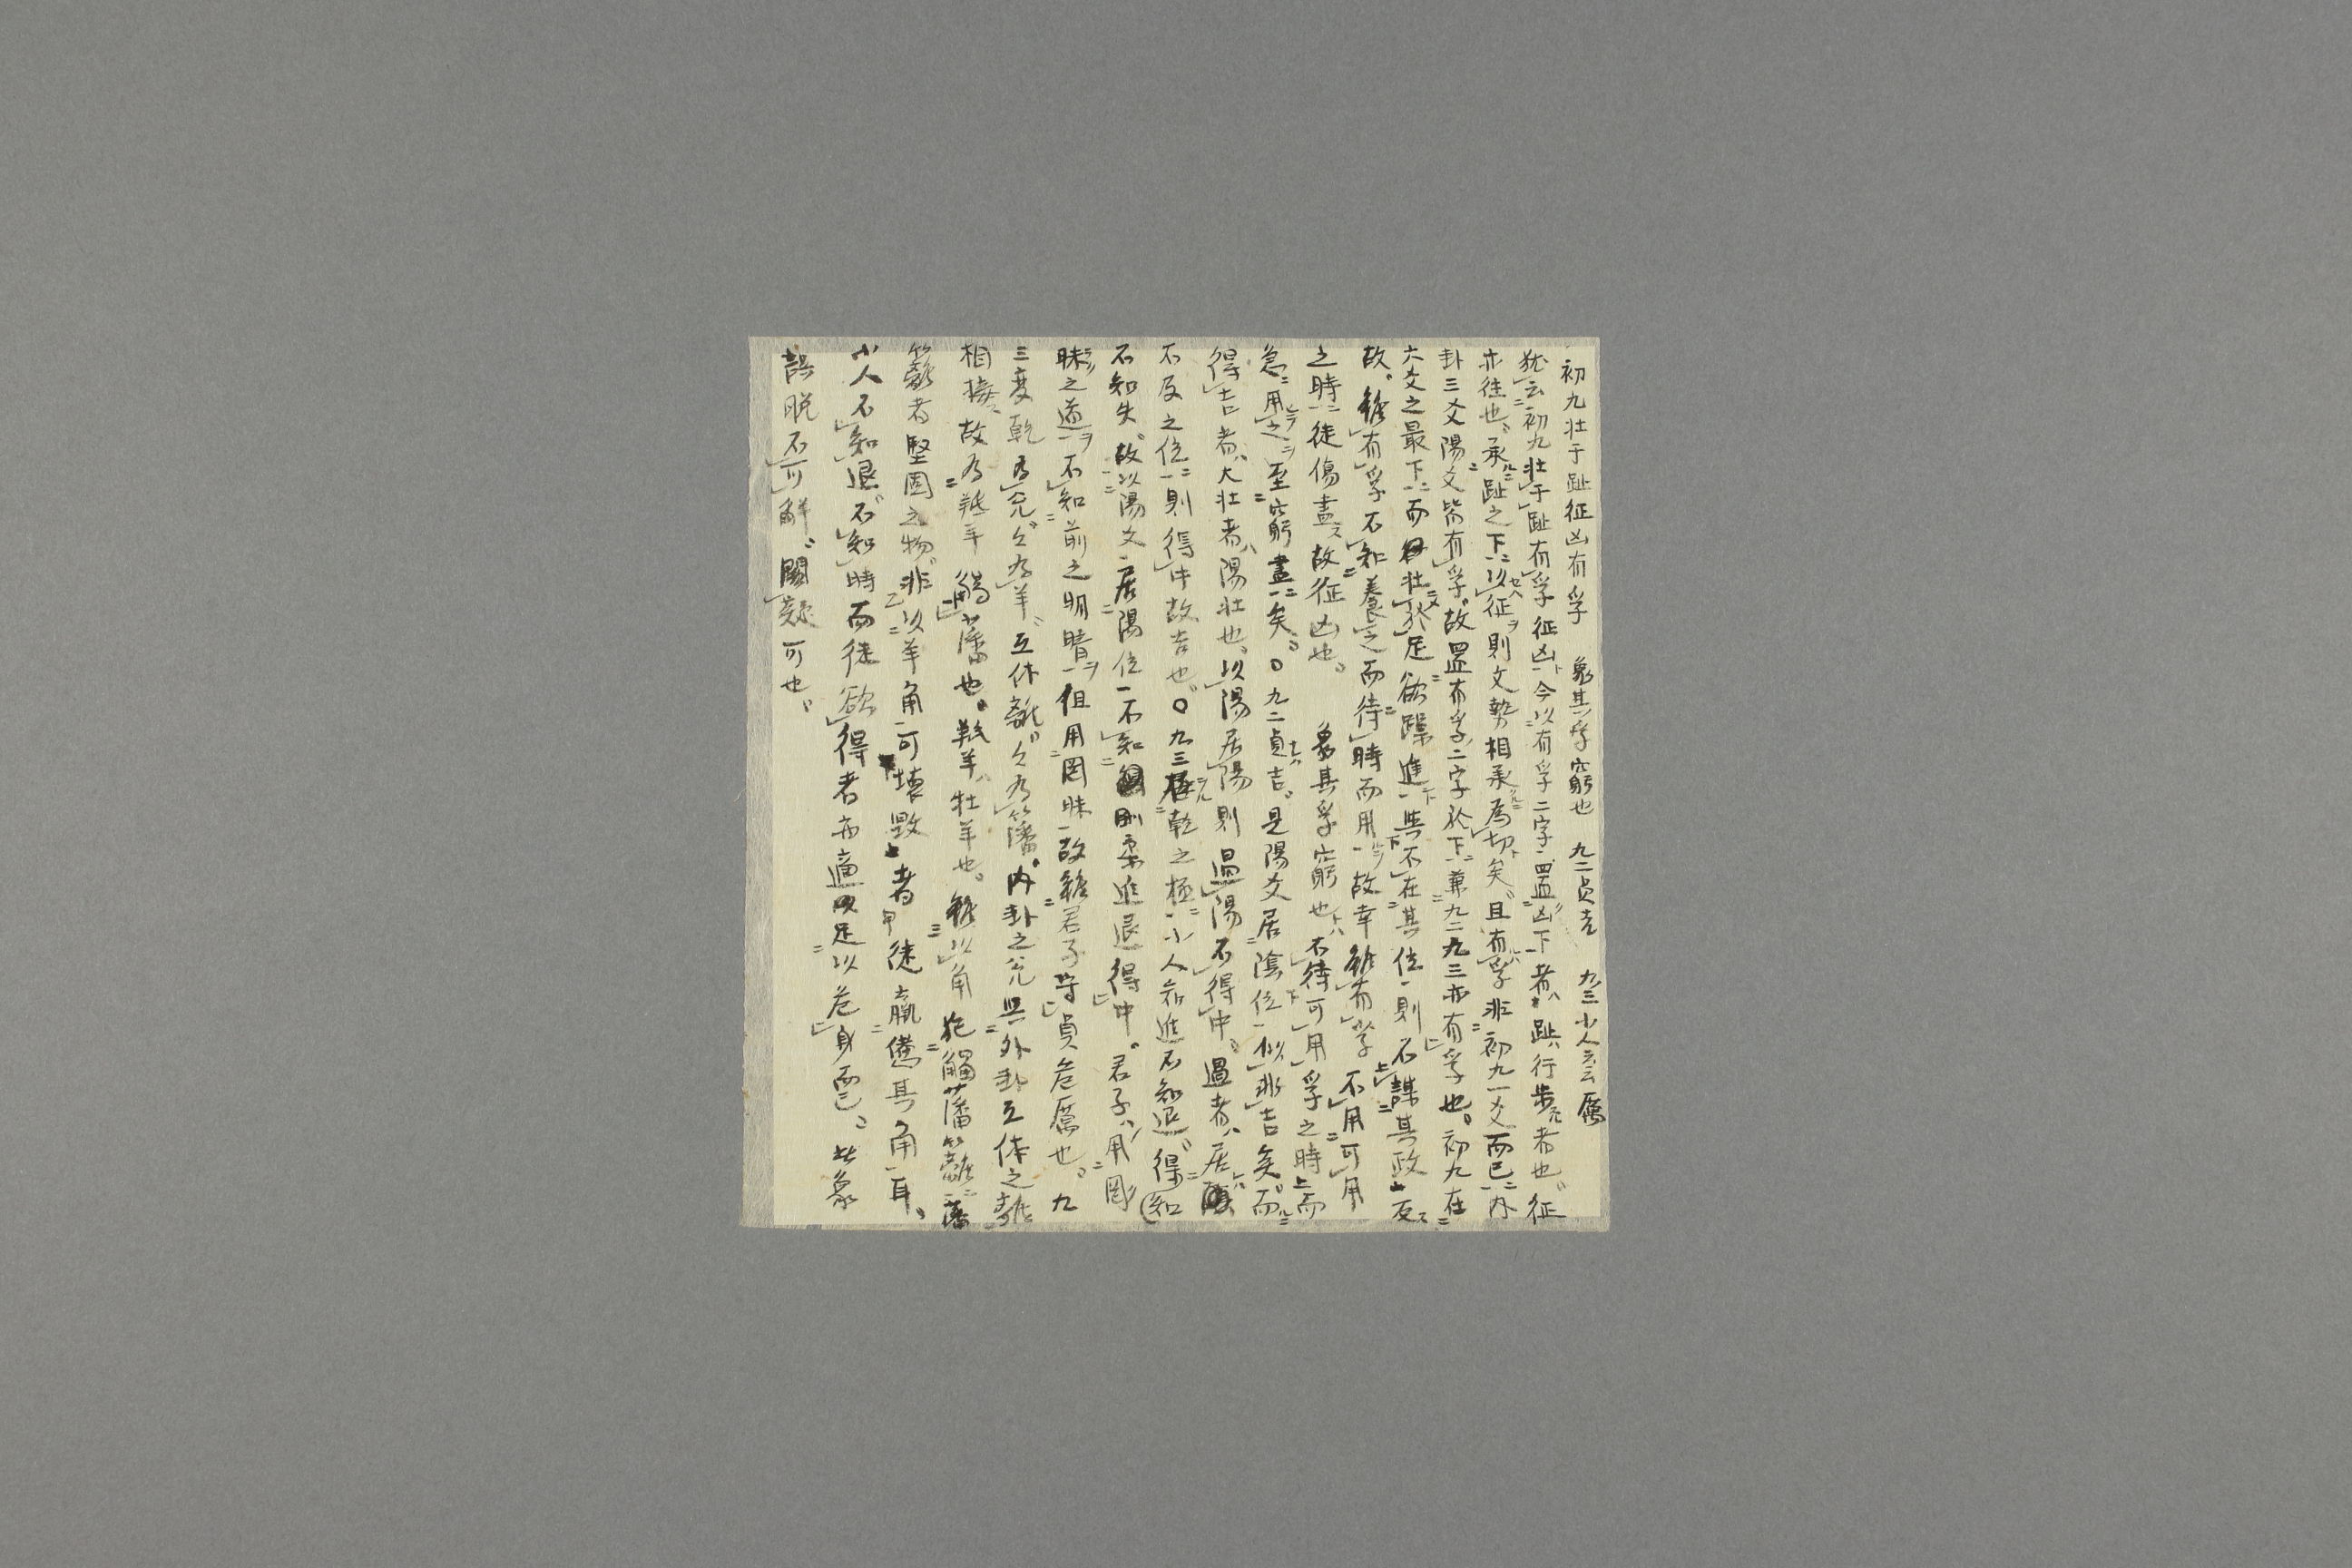 初九壮于趾征凶有孚 象其孚窮也 九二貞吉 九三小人云云厲
犹云初九壮于趾有孚征凶今以有孚二字置凶下者趾行歩者也征
亦往也承趾之下以征則文勢相承為切矣且有孚非初九一爻而已内
卦三爻陽爻皆有孚故置有孚二字於下兼九二九三亦有孚也初九在
六爻之最下而壮於足欲躁進与不在其位則不謀其政反
故雖有孚不知養之而待時而用故幸雖有孚不用可用
之時徒傷盡故征凶也 象其孚窮也不待可用孚之時而
急用之至窮盡矣〇九二貞吉是陽爻居陰位似非吉矣而
得吉者大壮者陽壮也以陽居陽則過陽不得中過者居
不及之位則得中故吉也〇九三極乾之極小人知進不知退得知
不知失故以陽爻居陽位不知剛柔進退得中君子用罔
昧之道不知前之明晴但用罔昧故雖君子守貞危厲也九
三変乾為兌兌為羊互体離離為籓内卦之兌与外卦互体之離
相接故為羝羊觸藩也羝羊牡羊也雖以角触觸藩籬藩
籬者堅固之物非以羊角可壊毀者徒羸憊其角耳
小人不知退不知時而徒欲得者亦適足以危身而已此象
誤脱不可解闕疑可也